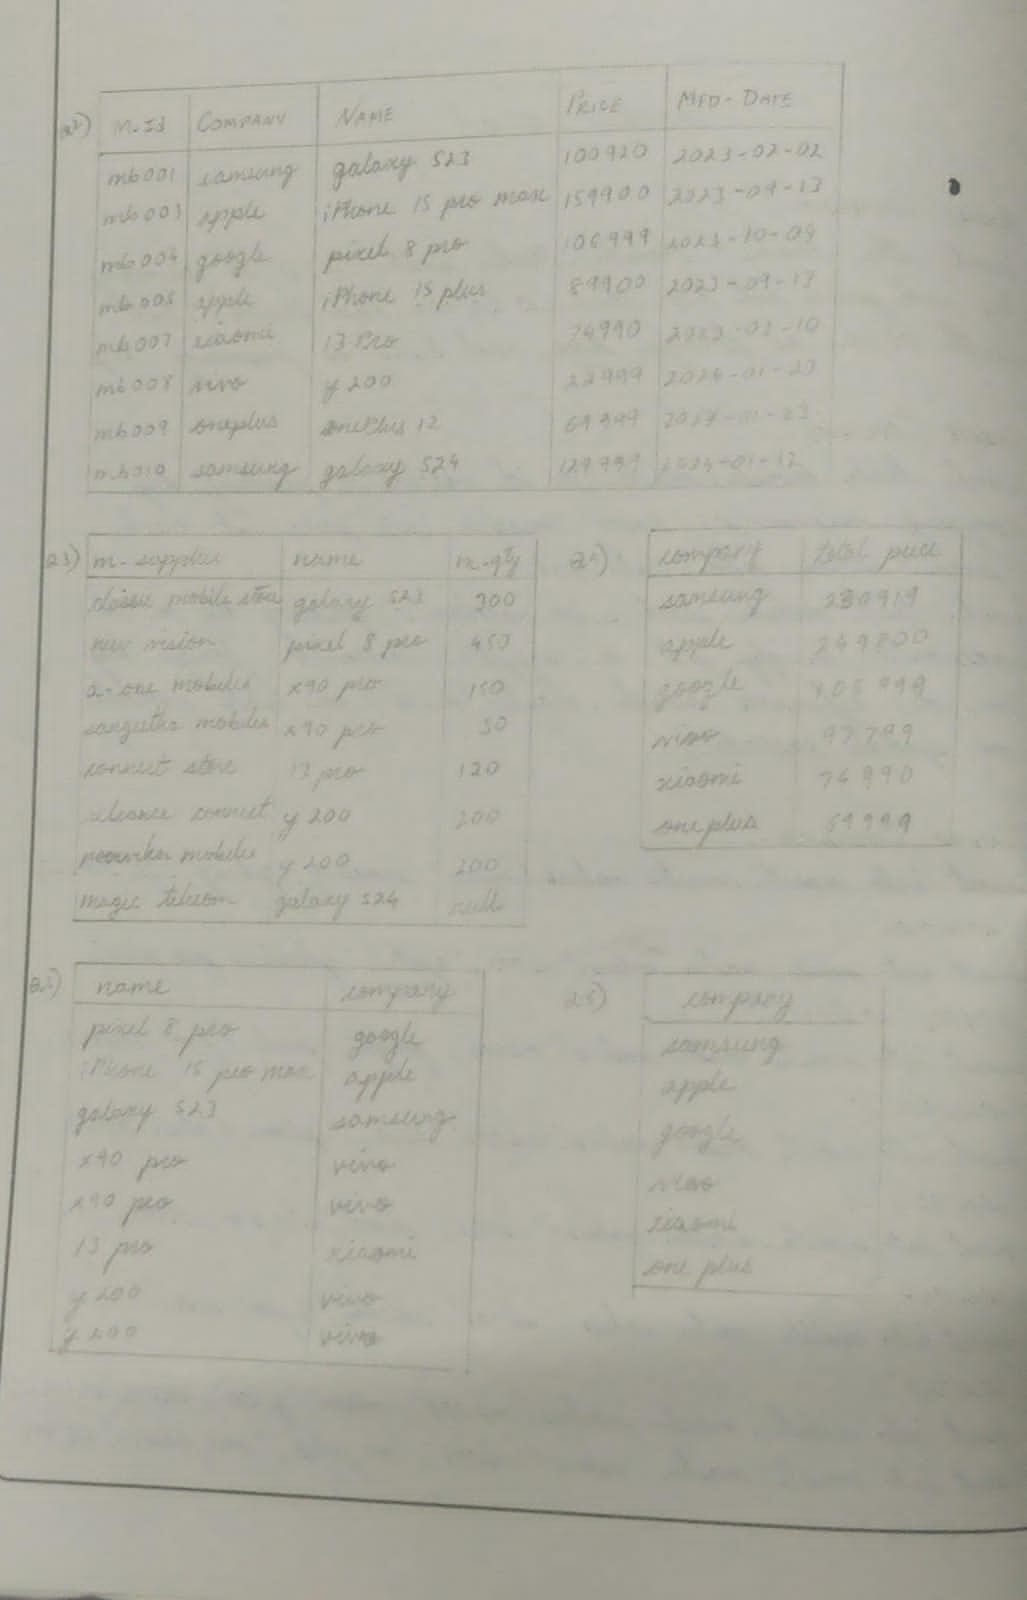 22) M-Id COMPANY NAME PRICE MFD-DATE
mb001 samsung galaxy S23 100920 2023-02-02
mb003 apple iPhone 15 pro max 159900 2023-09-13
mb004 google pixel 8 pro 106999 2023-10-04
mb005 apple iPhone 15 plus 89900 2023-09-13
mb007 xiaomi 13 Pro 74990
mb008 vivo y 200
mb009 oneplus onePlus 12 69999
mb010 samsung galaxy S24 129999
23) m-supplier name m-qty
classic mobile store galaxy S23 300
new vision pixel 8 pro 450
a-one mobiles x90 pro 150
sangeetha mobiles x90 pro 50
connect store 13 pro 120
reliance connect y 200 200
mobiles y 200 200
magic telecom galaxy S24 null
company total price
samsung 230919
apple 249800
google 106999
vivo
xiaomi 74990
one plus 69999
name company
pixel 8 pro google
iPhone 15 pro max apple
galaxy S23 samsung
x90 pro vivo
x90 pro vivo
13 pro xiaomi
y 200 vivo
y 200 vivo
company
samsung
apple
google
vivo
xiaomi
one plus